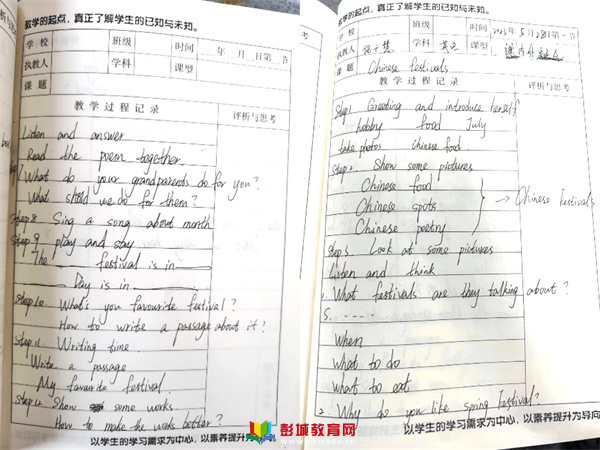 教学的起点,真正了解学生的已知与未知。
学 校 班级 时间 年 月 日第 节
执教人 学科 课型
课 题
教 学 过 程 记 录 评析与思考
Listen and answer
Read the poem together.
What do your grandparents do for you?
What should we do for them?
Step 8 Sing a song about month
Step 9 play and stay
The ____ festival is in ____
____ Day is in ____
Step 10 What's you favourite festival?
How to write a passage about it?
Step 11 Writing time
Write a passage
My favourite festival
Step 12 Show some works
How to make the works better?
以学生的学习需求为中心,以素养提升为
教学的起点,真正了解学生的已知与未知。
学 校 班级 时间 2025年 5月28日第一节
执教人 学科 英语 课型
课 题 Chinese festivals
教 学 过 程 记 录 评析与思考
Step 1 Greeting and introduce herself
hobby food July
take photos chinese food
Step 2 Show some pictures
Chinese food
Chinese spots → Chinese Festivals
Chinese poetry
Step 3 Look at some pictures
Listen and think
1. What festivals are they talking about?
S. ......
When
What to do
What to eat
2. Why do you like Spring Festival?
以学生的学习需求为中心,以素养提升为导向
彭城教育网